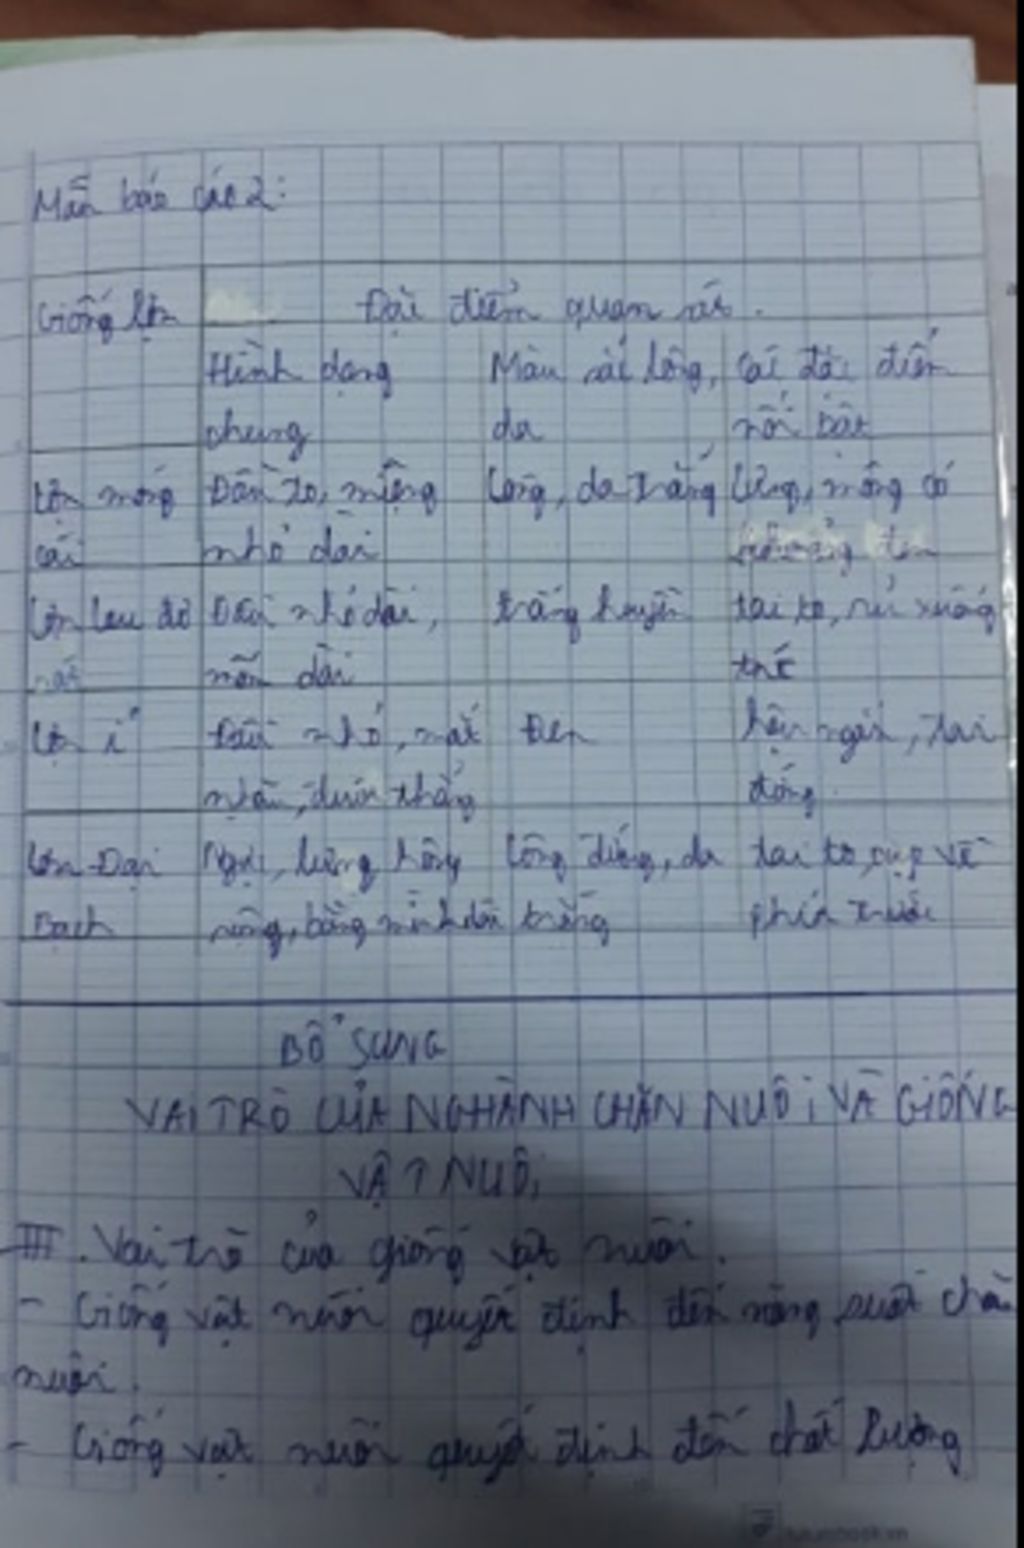 Mẫu báo cáo 2:
Giống lợn Đặc điểm quan sát.
Hình dạng Màu sắc lông, các đặc điểm
chung da nổi bật
Lợn móng Đầu to, miệng lông, da trắng Lưng, mông có
cái nhỏ dài đen
Lợn lan đơ Đầu nhỏ dài, trắng tuyền tai to, rủ xuống
rát mõm dài
Lợn ỉ Đầu nhỏ, mặt Đen ngắn, tai
nhăn, đuôi thẳng đứng.
Lợn Đại lưng lông cứng, da tai to, cụp về
Bạch trắng phía trước
BỔ SUNG
VAI TRÒ CỦA NGHÀNH CHĂN NUÔI VÀ GIỐNG
VẬT NUÔI
III. Vai trò của giống vật nuôi.
- Giống vật nuôi quyết định đến năng suất chăn
nuôi.
- Giống vật nuôi quyết định đến chất lượng